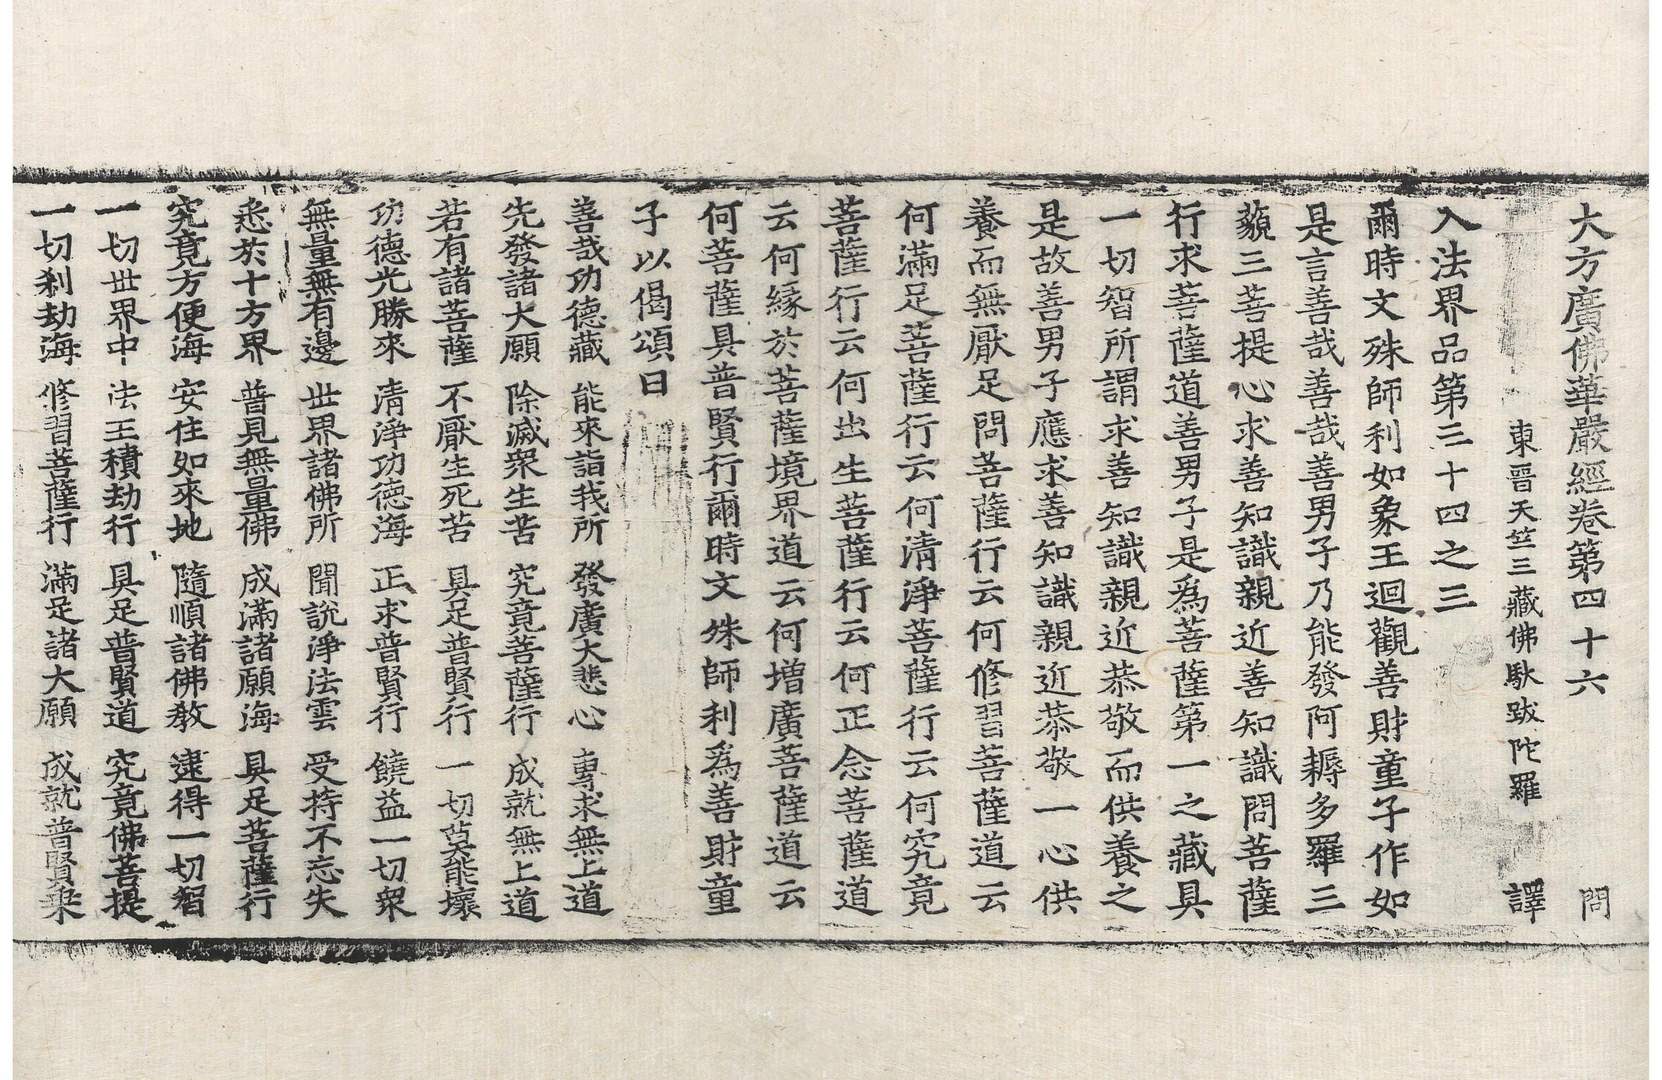 大方廣佛華嚴經卷第四十六 問
東晉天竺三藏佛馱跋陀羅 譯
入法界品第三十四之三
爾時文殊師利如象王迴觀善財童子作如
是言善哉善哉善男子乃能發阿耨多羅三
藐三菩提心求善知識親近善知識問菩薩
行求菩薩道善男子是爲菩薩第一之藏具
一切智所謂求善知識親近恭敬而供養之
是故善男子應求善知識親近恭敬一心供
養而無厭足問菩薩行云何修習菩薩道云
何滿足菩薩行云何清淨菩薩行云何究竟
菩薩行云何出生菩薩行云何正念菩薩道
云何緣於菩薩境界道云何增廣菩薩道云
何菩薩具普賢行爾時文殊師利爲善財童
子以偈頌曰
善哉功德藏 能來詣我所 發廣大悲心 專求無上道
先發諸大願 除滅衆生苦 究竟菩薩行 成就無上道
若有諸菩薩 不厭生死苦 具足普賢行 一切莫能壞
功德光勝來 清淨功德海 正求普賢行 饒益一切衆
無量無有邊 世界諸佛所 聞說淨法雲 受持不忘失
悉於十方界 普見無量佛 成滿諸願海 具足菩薩行
究竟方便海 安住如來地 隨順諸佛教 逮得一切智
一切世界中 法王積劫行 具足普賢道 究竟佛菩提
一切刹劫海 修習菩薩行 滿足諸大願 成就普賢乘